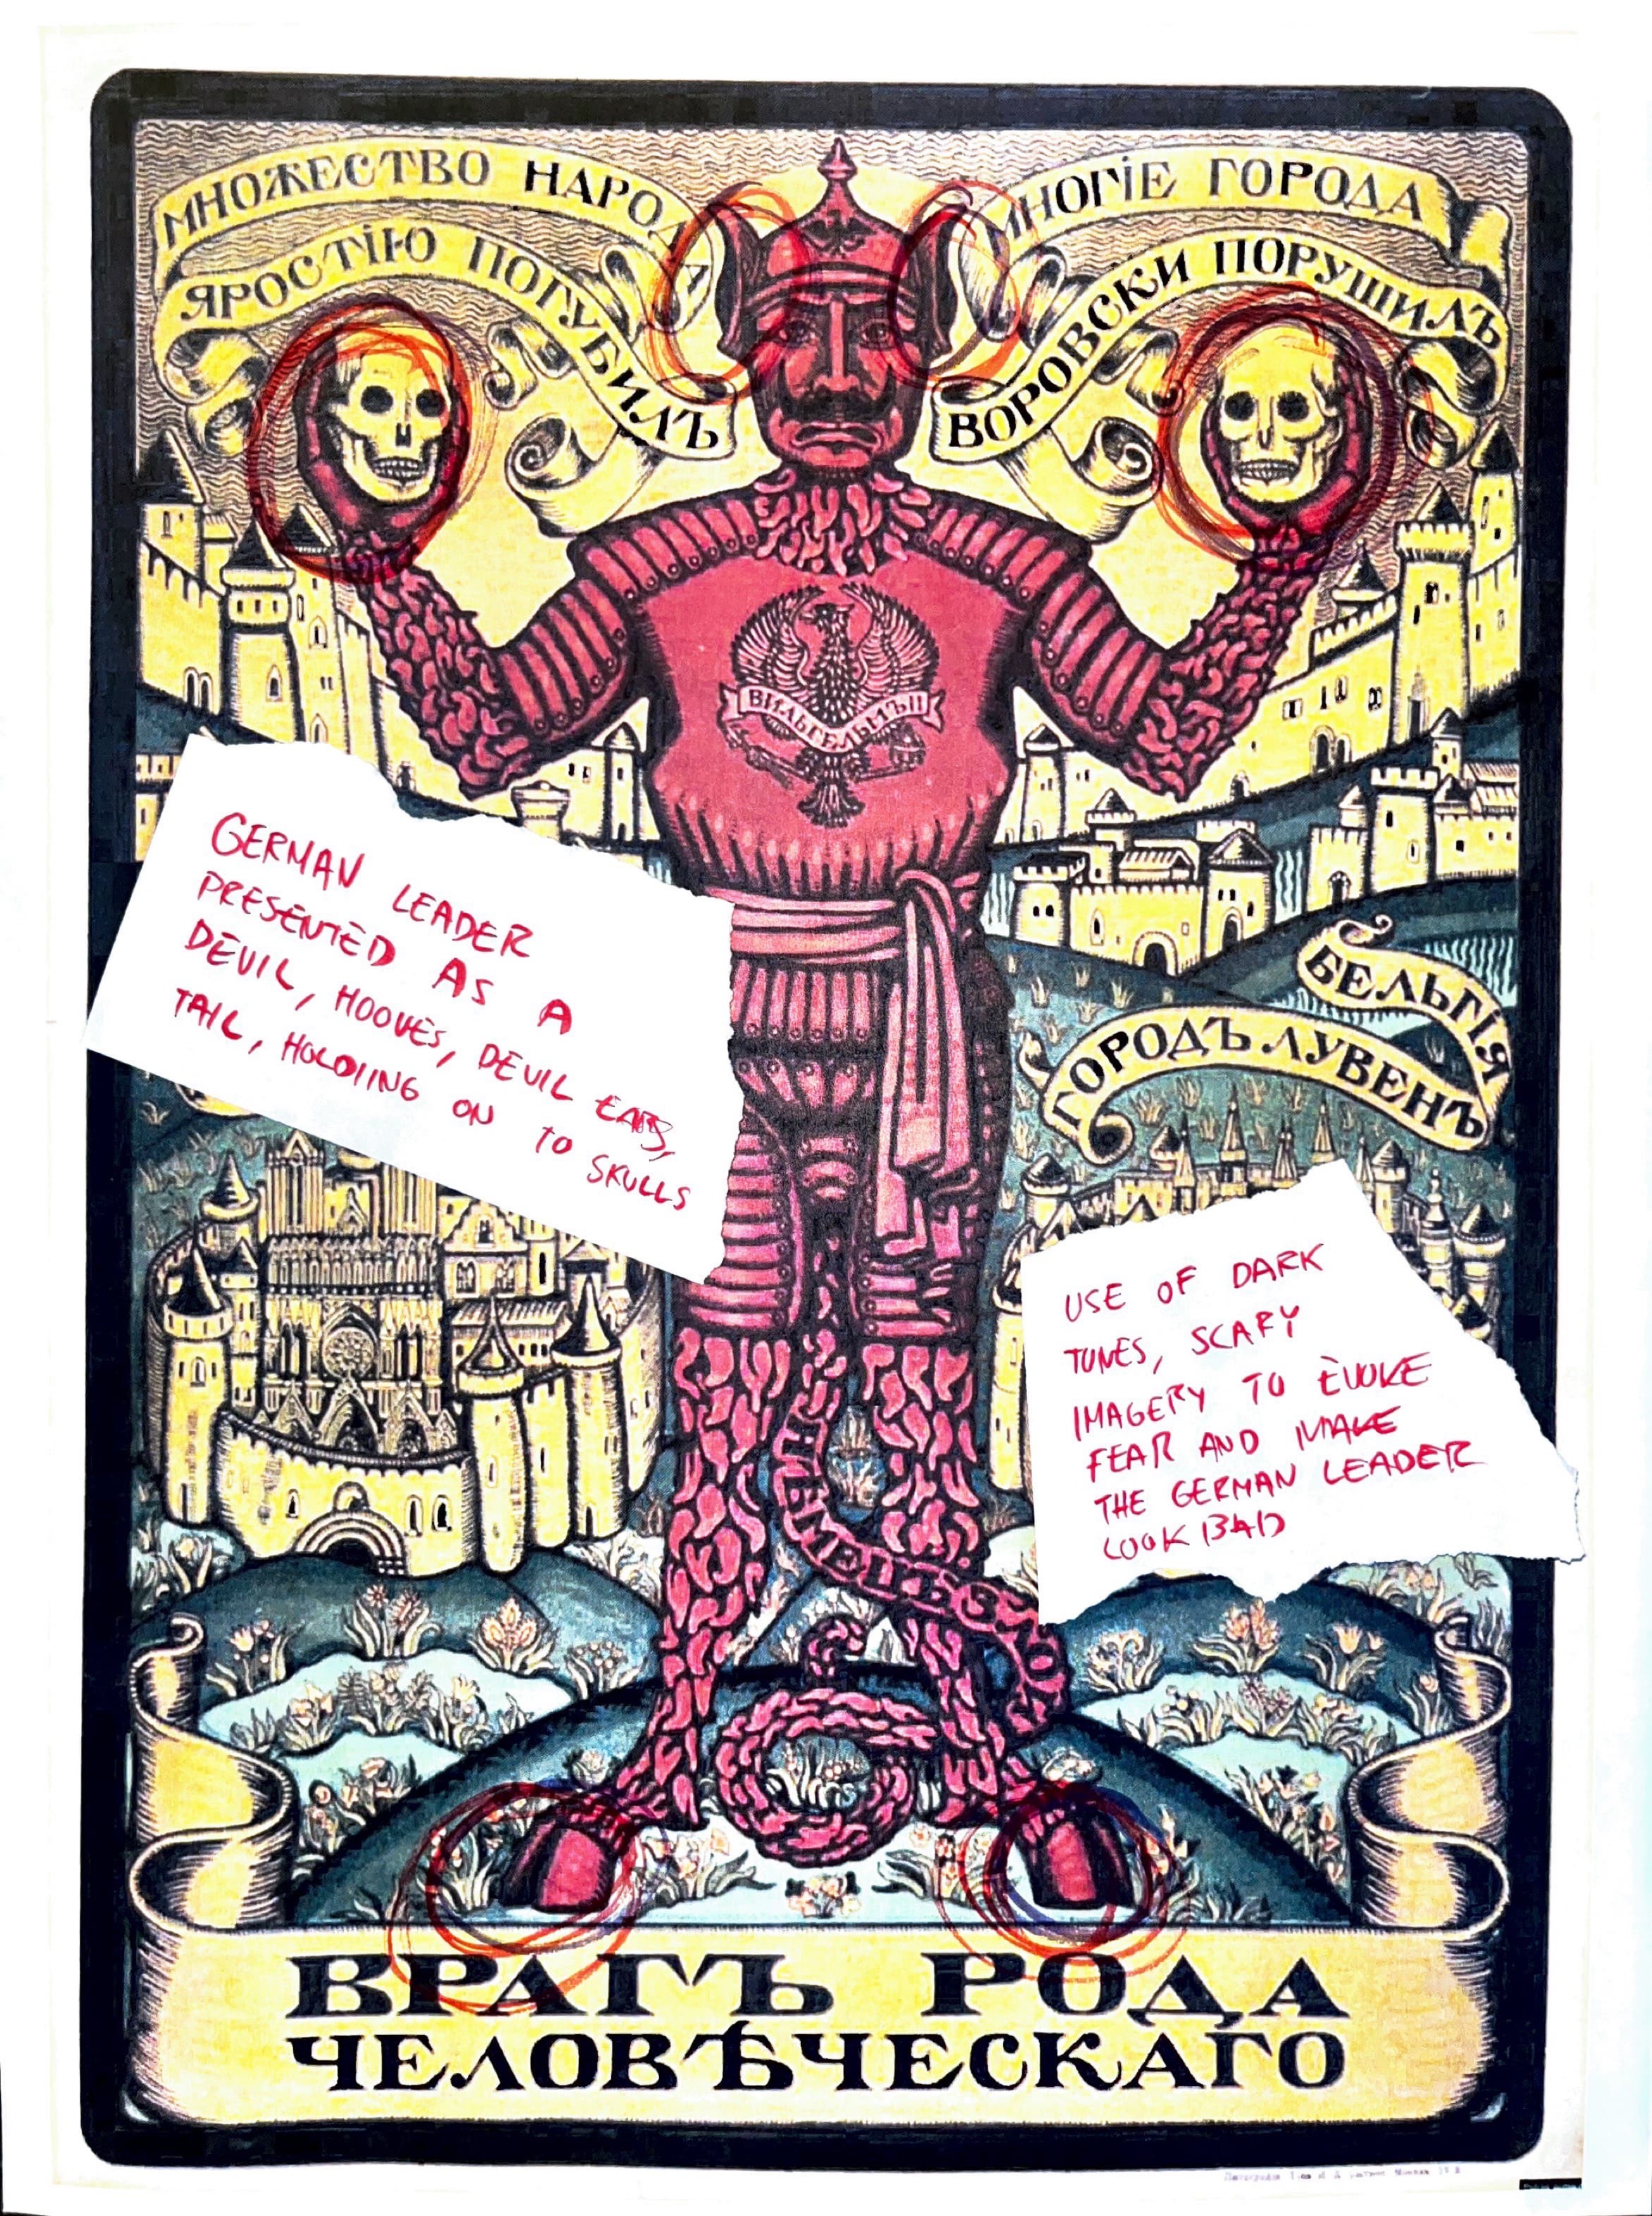 МНОЖЕСТВО НАРОДА
ЯРОСТІЮ ПОГУБИЛЪ
МНОГІЕ ГОРОДА
ВОРОВСКИ ПОРУШИЛЪ
ВИЛЬГЕЛЬМЪ II
GERMAN LEADER
PRESENTED AS A
DEVIL, HOOVES, DEVIL EARS,
TAIL, HOLDIING ON TO SKULLS
БЕЛЬГІЯ
ГОРОДЪ ЛУВЕНЪ
USE OF DARK
TONES, SCARY
IMAGERY TO EVOKE
FEAR AND MAKE
THE GERMAN LEADER
LOOK BAD
ВРАГЪ РОДА
ЧЕЛОВѢЧЕСКАГО